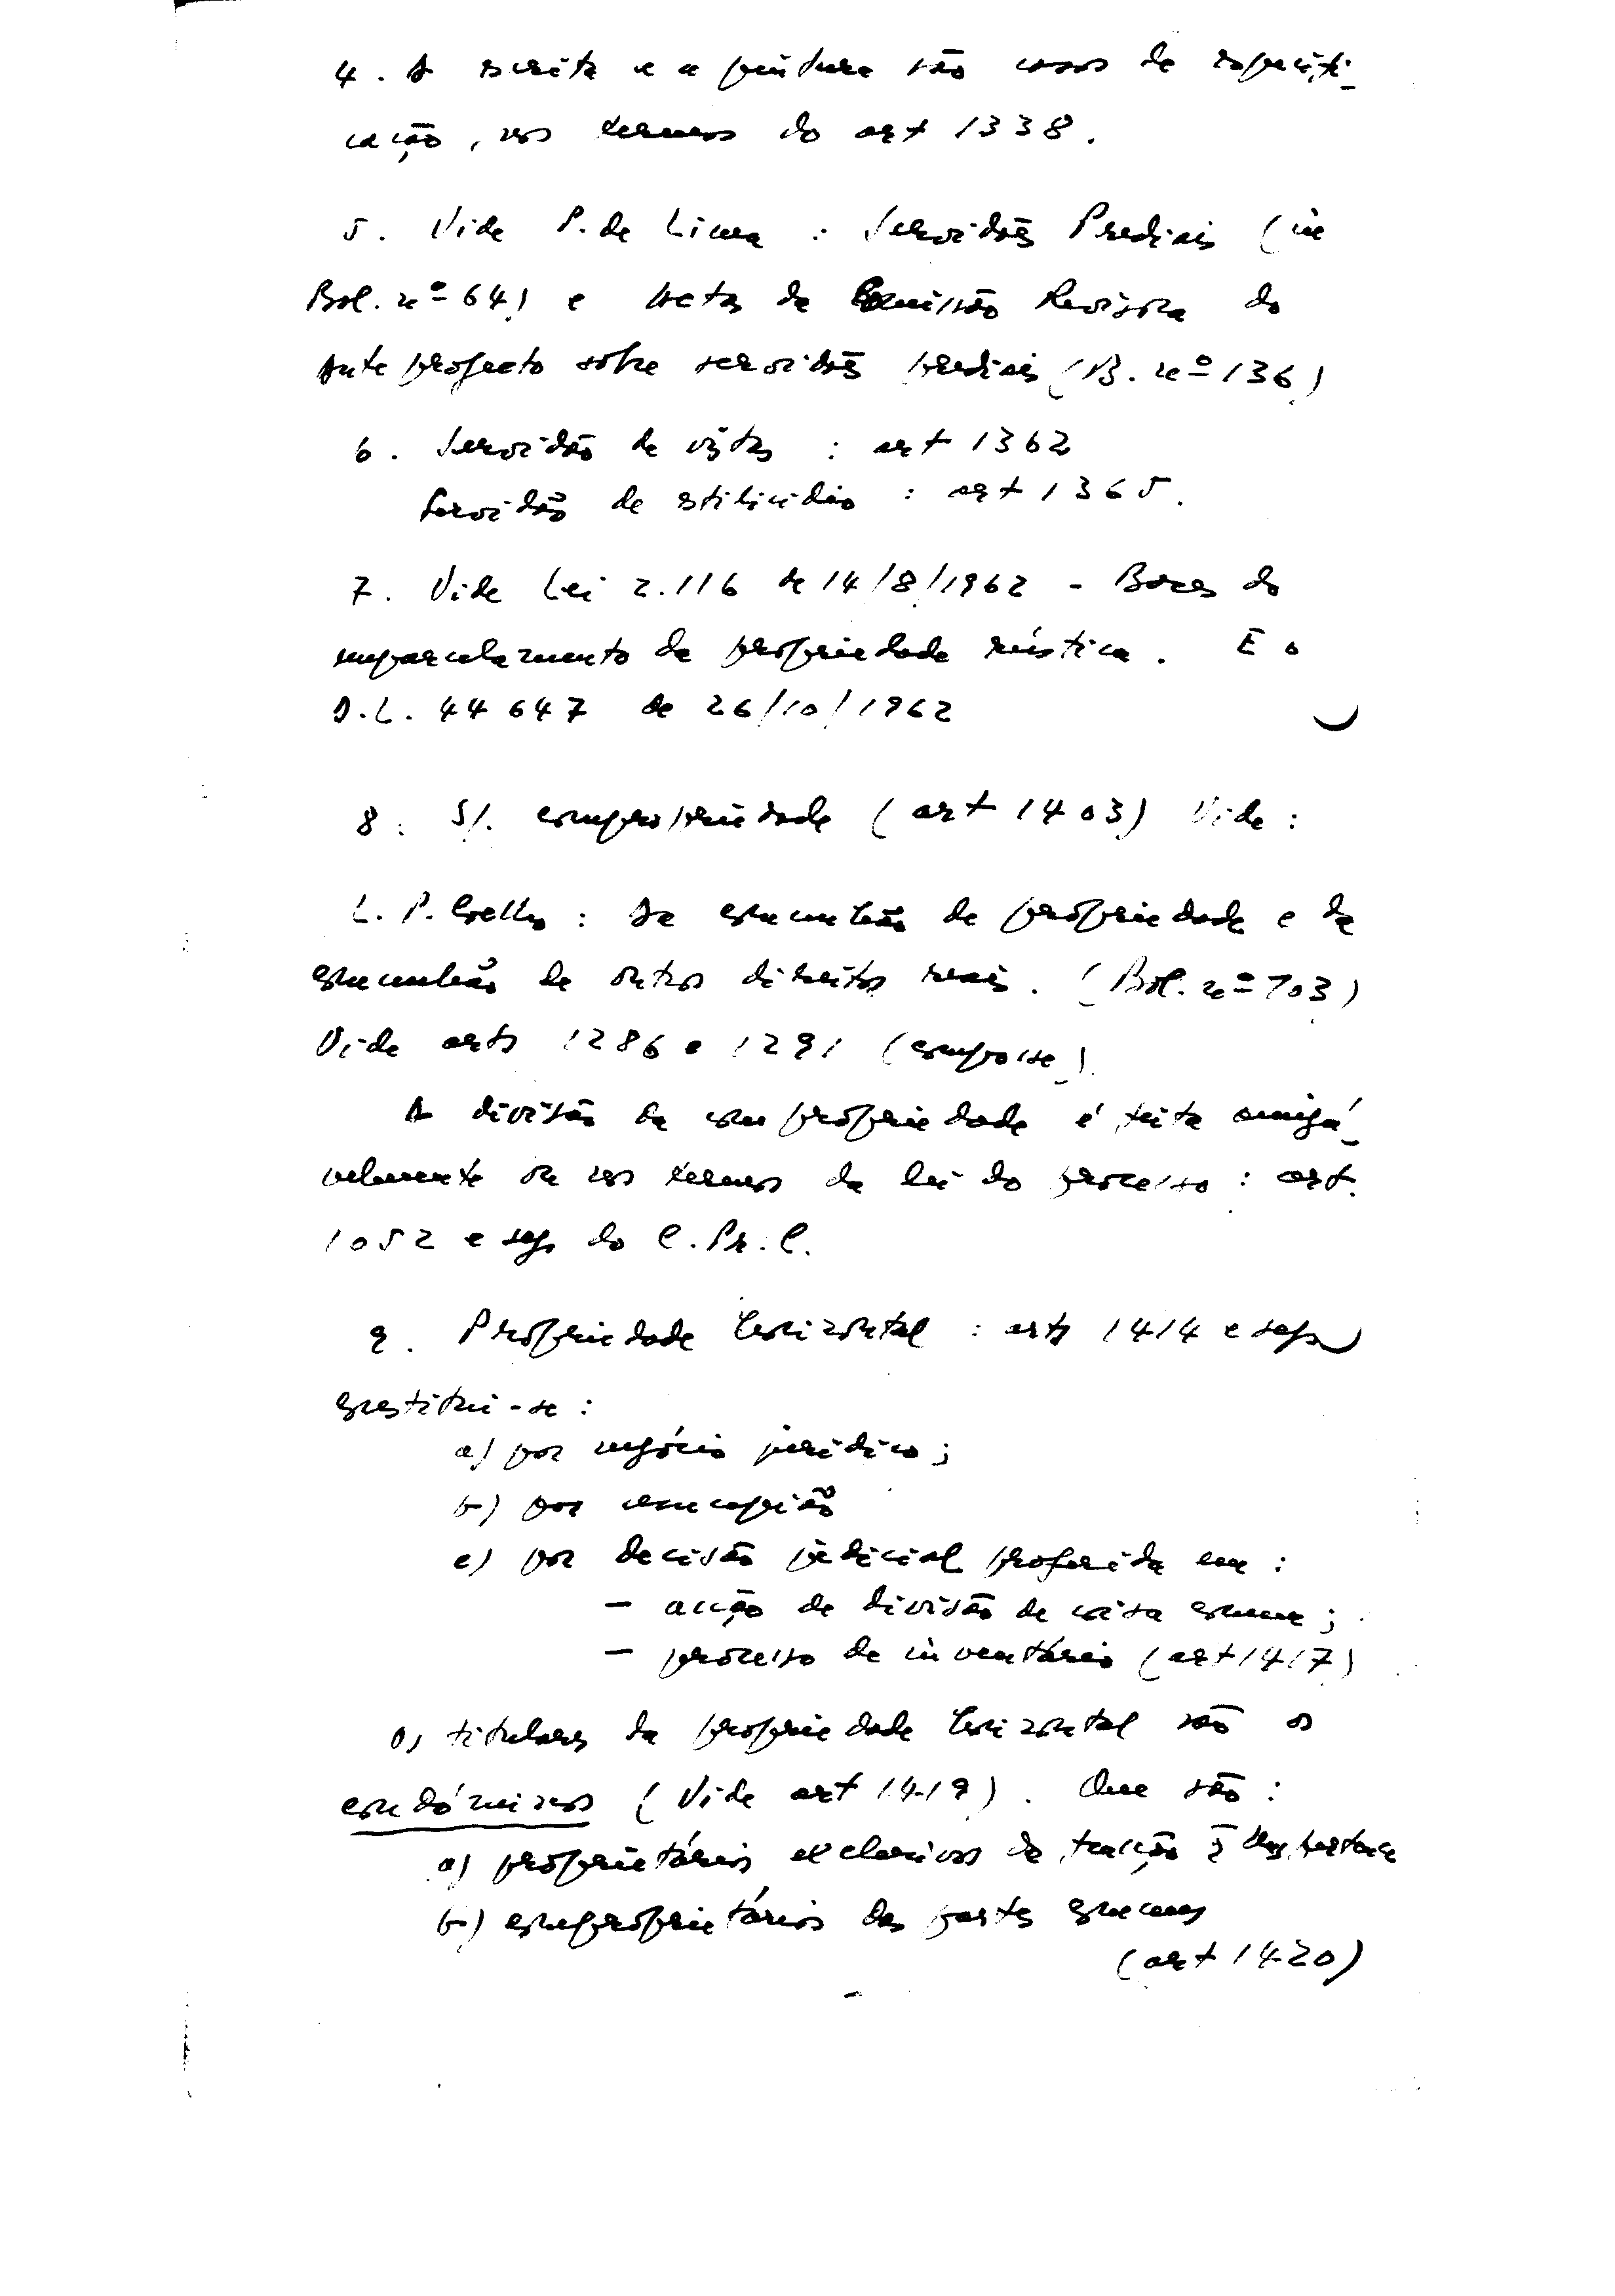 4. A escrita e a pintura são casos de especifi-
cação, nos termos do art 1338.
5. Vide P. de Lima : Servidões Prediais (in
Bol. nº 64) e Actas da Comissão Revisora do
Ante projecto sobre servidões prediais (B. nº 136)
6. Servidão de vistas : art 1362
Servidão de estilicídio : art 1365.
7. Vide Lei 2.116 de 14/8/1962 - Bases do
emparcelamento da propriedade rústica. E o
D.L. 44 647 de 26/10/1962
8. S/. compropriedade (art 1403) Vide :
L. P. Coelho : Da comunhão de propriedade e da
comunhão de outros direitos reais. (Bol. nº 703)
Vide arts 1286 e 1291 (composse).
A divisão da compropriedade é feita amigá-
velmente ou nos termos da lei do processo : art.
1052 e segs do C. Pr. C.
9. Propriedade horizontal : arts 1414 e segs
Constitui-se :
a) por negócio jurídico ;
b) por usucapião
c) por decisão judicial proferida em :
- acção de divisão de coisa comum ;
- processo de inventário (art 1417)
Os titulares da propriedade horizontal são os
condóminos (Vide art 1419). Que são :
a) proprietários exclusivos da fracção q̃ lhes pertence
b) comproprietários das partes comuns
(art 1420)